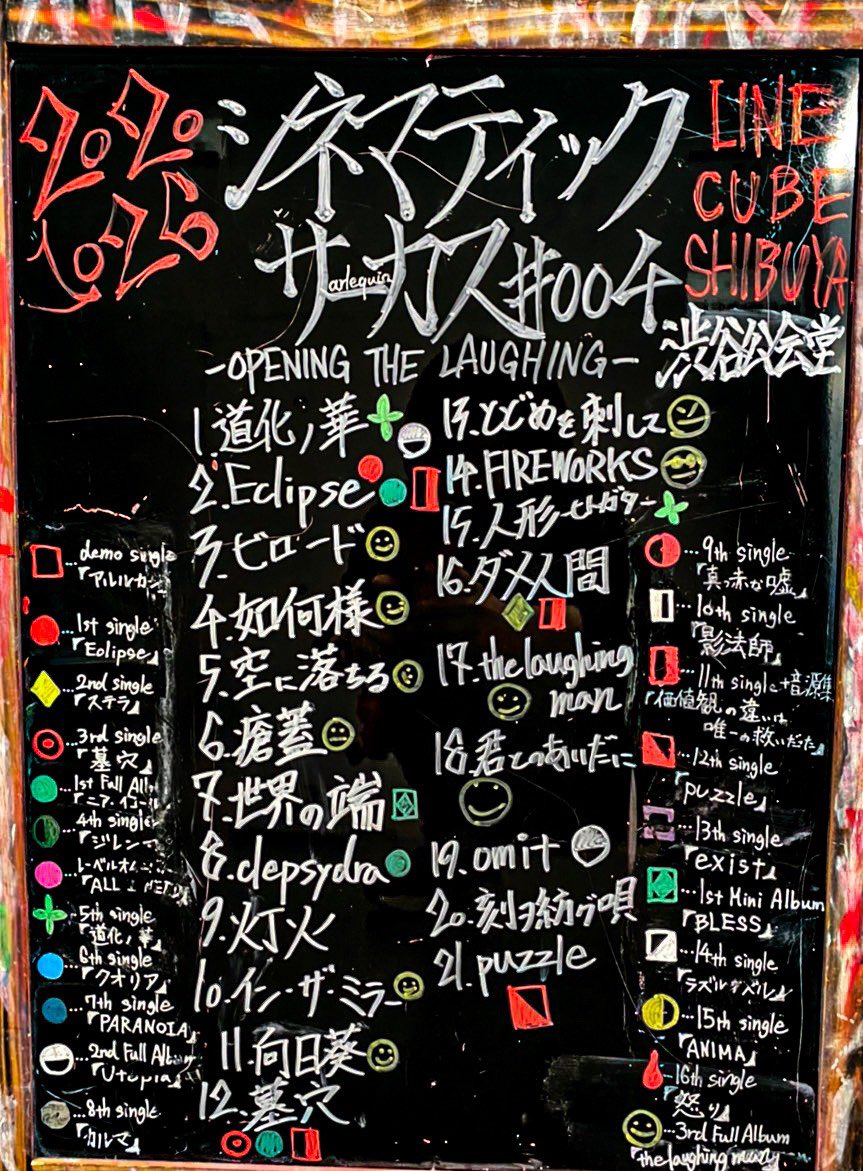 2020
1026
シネマティック
サーカス#004
arlequin
LINE
CUBE
SHIBUYA
渋谷公会堂
-OPENING THE LAUGHING-
1.道化ノ華
2.Eclipse
3.ビロード
4.如何様
5.空に落ちる
6.瘡蓋
7.世界の端
8.clepsydra
9.灯火
10.イン・ザ・ミラー
11.向日葵
12.墓穴
13.とどめを刺して
14.FIREWORKS
15.人形
16.ダメ人間
17.the laughing
man
18.君とのあいだに
19.omit
20.刻ヲ紡グ唄
21.puzzle
…demo single
『アルルカン』
…1st single
『Eclipse』
…2nd single
『ステラ』
…3rd single
『墓穴』
…1st Full Alb
『ニア・イコール
…4th single
『ジレン
レーベルオム
『ALL
…5th single
『道化ノ華』
…6th single
『クオリア』
…7th single
『PARANOIA』
…2nd Full Alb
『Utopia』
…8th single
『カルマ』
…9th single
『真っ赤な嘘』
…10th single
『影法師』
…11th single+音源集
『価値観の違いは
唯一の救いだった』
…12th single
『puzzle』
…13th single
『exist』
…1st Mini Album
『BLESS』
…14th single
『ラズルダズル』
…15th single
『ANIMA』
…16th single
『怒り』
…3rd Full Album
『the laughing man』